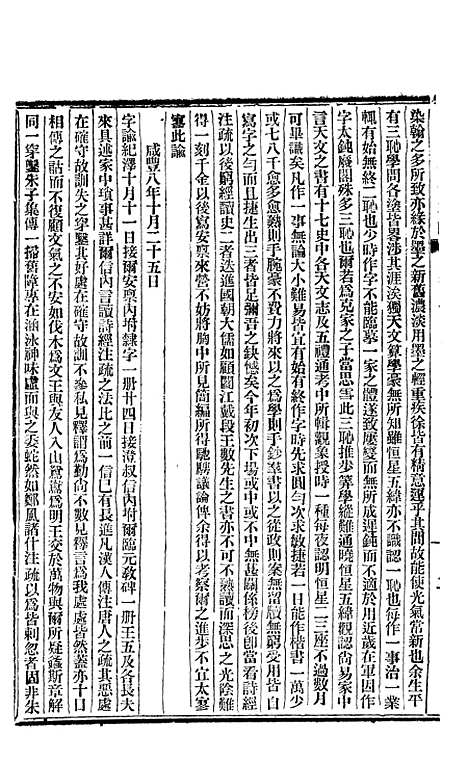 染翰之多所致亦緣於墨之新舊濃淡用墨之輕重疾徐皆有精意運乎其間故能使光氣常新也余生平
有三恥學問各塗皆畧涉其涯涘獨天文算學毫無所知雖恒星五緯亦不識認一恥也每作一事治一業
輒有始無終二恥也少時作字不能臨摹一家之體遂致屢變而無所成遲鈍而不適於用近歲在軍因作
字太鈍廢閣殊多三恥也爾若爲克家之子當思雪此三恥推步算學縱難通曉恒星五緯觀認尙易家中
言天文之書有十七史中各天文志及五禮通考中所輯觀象授時一種每夜認明恒星一二座不過數月
可畢識矣凡作一事無論大小難易皆宜有始有終作字時先求圓勻次求敏捷若一日能作楷書一萬少
或七八千愈多愈熟則手腕毫不費力將來以之爲學則手鈔羣書以之從政則案無留牘無窮受用皆自
寫字之勻而且捷生出三者皆足彌吾之缺憾矣今年初次下場或中或不中無甚關係榜後卽當看詩經
注疏以後窮經讀史二者迭進國朝大儒如顧閻江戴段王數先生之書亦不可不熟讀而深思之光陰難
得一刻千金以後寫安稟來營不妨將胸中所見簡編所得馳騁議論俾余得以考察爾之進步不宜太寥
寥此諭
咸豐八年十月二十五日
字諭紀澤十月十一日接爾安稟內附隸字一册廿四日接澄叔信內附爾臨元敎碑一册王五及各長夫
來具述家中瑣事甚詳爾信內言讀詩經注疏之法比之前一信已有長進凡漢人傳注唐人之疏其惡處
在確守故訓失之穿鑿其好處在確守故訓不參私見釋謂爲勤尙不數見釋言爲我處處皆然蓋亦十口
相傳之詁而不復顧文氣之不安如伐木爲文王與友人入山鴛鴦爲明王交於萬物與爾所疑螽斯章解
同一穿鑿朱子集傳一掃舊障專在涵泳神味虛而與之委蛇然如鄭風諸什注疏以爲皆刺忽者固非朱